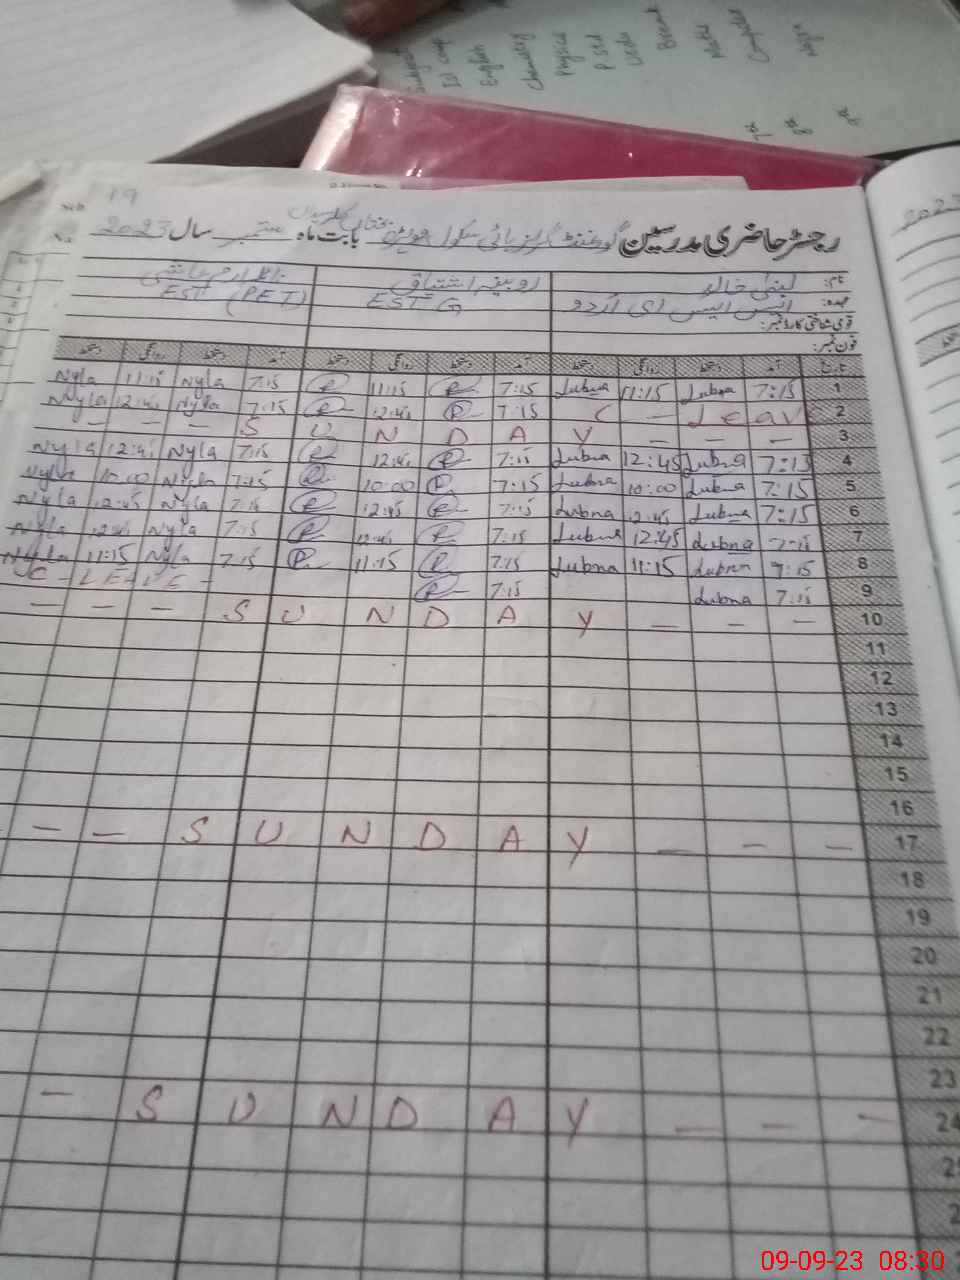 Subject
English
Chemistry
Physics
P std
Urdu
Break
Maths
Computer
7th
8th
19
رجسٹر حاضری مدرسین گورنمنٹ گرلز ہائی سکول بابت ماہ ستمبر سال 2023
نام: لبنیٰ خالد روبینہ اشتیاق
عہدہ: ایس ایس ای اردو EST G EST (PET)
قومی شناختی کارڈ نمبر:
فون نمبر:
تاریخ آمد دستخط روانگی دستخط آمد دستخط روانگی دستخط آمد دستخط روانگی دستخط
1 7:15 Lubna 11:15 Lubna 7:15 11:15 7:15 Nyla 11:15 Nyla
2 C — Leav 7:15 12:45 7:15 Nyla 12:45 Nyla
3 — — — S U N D A Y — — —
4 7:15 Lubna 12:45 Lubna 7:15 12:45 7:15 Nyla 12:45 Nyla
5 7:15 Lubna 10:00 Lubna 7:15 10:00 7:15 Nyla 10:00 Nyla
6 7:15 Lubna 12:45 Lubna 7:15 12:45 7:15 Nyla 12:45 Nyla
7 7:15 Lubna 12:45 Lubna 7:15 12:45 7:15 Nyla 12:45 Nyla
8 7:15 Lubna 11:15 Lubna 7:15 11:15 7:15 Nyla 11:15 Nyla
9 7:15 Lubna 7:15 C - LEAVE -
10 — — — S U N D A Y — — —
11
12
13
14
15
16
17 — — S U N D A Y — — —
18
19
20
21
22
23
24 — S U N D A Y — — —
25
09-09-23 08:30